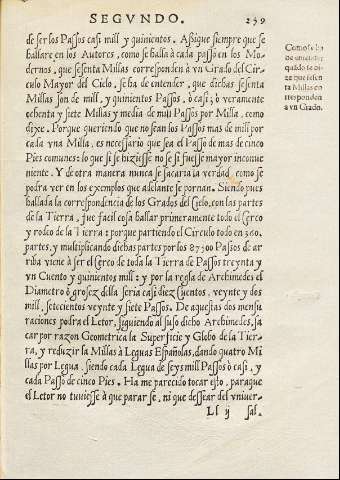 SEGVNDO. 259
de ser los Passos casi mill y quinientos. Assique siempre que se
hallare en los Autores, como se halla à cada passo en los Mo-
dernos, que sesenta Millas corresponden à vn Grado del Cir-
culo Mayor del Cielo, se ha de entender, que dichas sesenta
Millas son de mill, y quinientos Passos, ò casi; ò veramente
ochenta y siete Millas y media de mill Passos por Milla, como
dixe. Porque queriendo que no sean los Passos mas de mill por
cada vna Milla, es necessario que sea el Passo de mas de cinco
Pies comunes: lo que si se hiziesse no se si fuesse mayor inconue
niente. Y de otra manera nunca se sacaria la verdad, como se
podra ver en los exemplos que adelante se pornan. Siendo pues
hallada la correspondencia de los Grados del Cielo, con las partes
de la Tierra, fue facil cosa hallar primeramente todo el Cerco
y rodeo de la Tierra: porque partiendo el Circulo todo en 360.
partes, y multiplicando dichas partes por los 87500 Passos de ar
riba viene à ser el Cerco de toda la Tierra de Passos treynta y
vn Cuento y quinientos mill: y por la regla de Archimedes el
Diametro ò grosez della seria casi diez Cuentos, veynte y dos
mill, setecientos veynte y siete Passos. De aquestas dos mensu
raciones podra el Letor, siguiendo al suso dicho Archimedes, sa
car por razon Geometrica la Superficie y Globo de la Tier-
ra, y reduzir la Millas à Leguas Españolas, dando quatro Mi
llas por Legua, siendo cada Legua de seys mill Passos ò casi, y
cada Passo de cinco Pies. Ha me parecido tocar esto, paraque
el Letor no tuuiesse à que parar se, ni que dessear del vniuer-
Ll ij sal.
Como se ha
de entender
quãdo se di-
ze que sesen
ta Millas co
rresponden
à vn Grado.